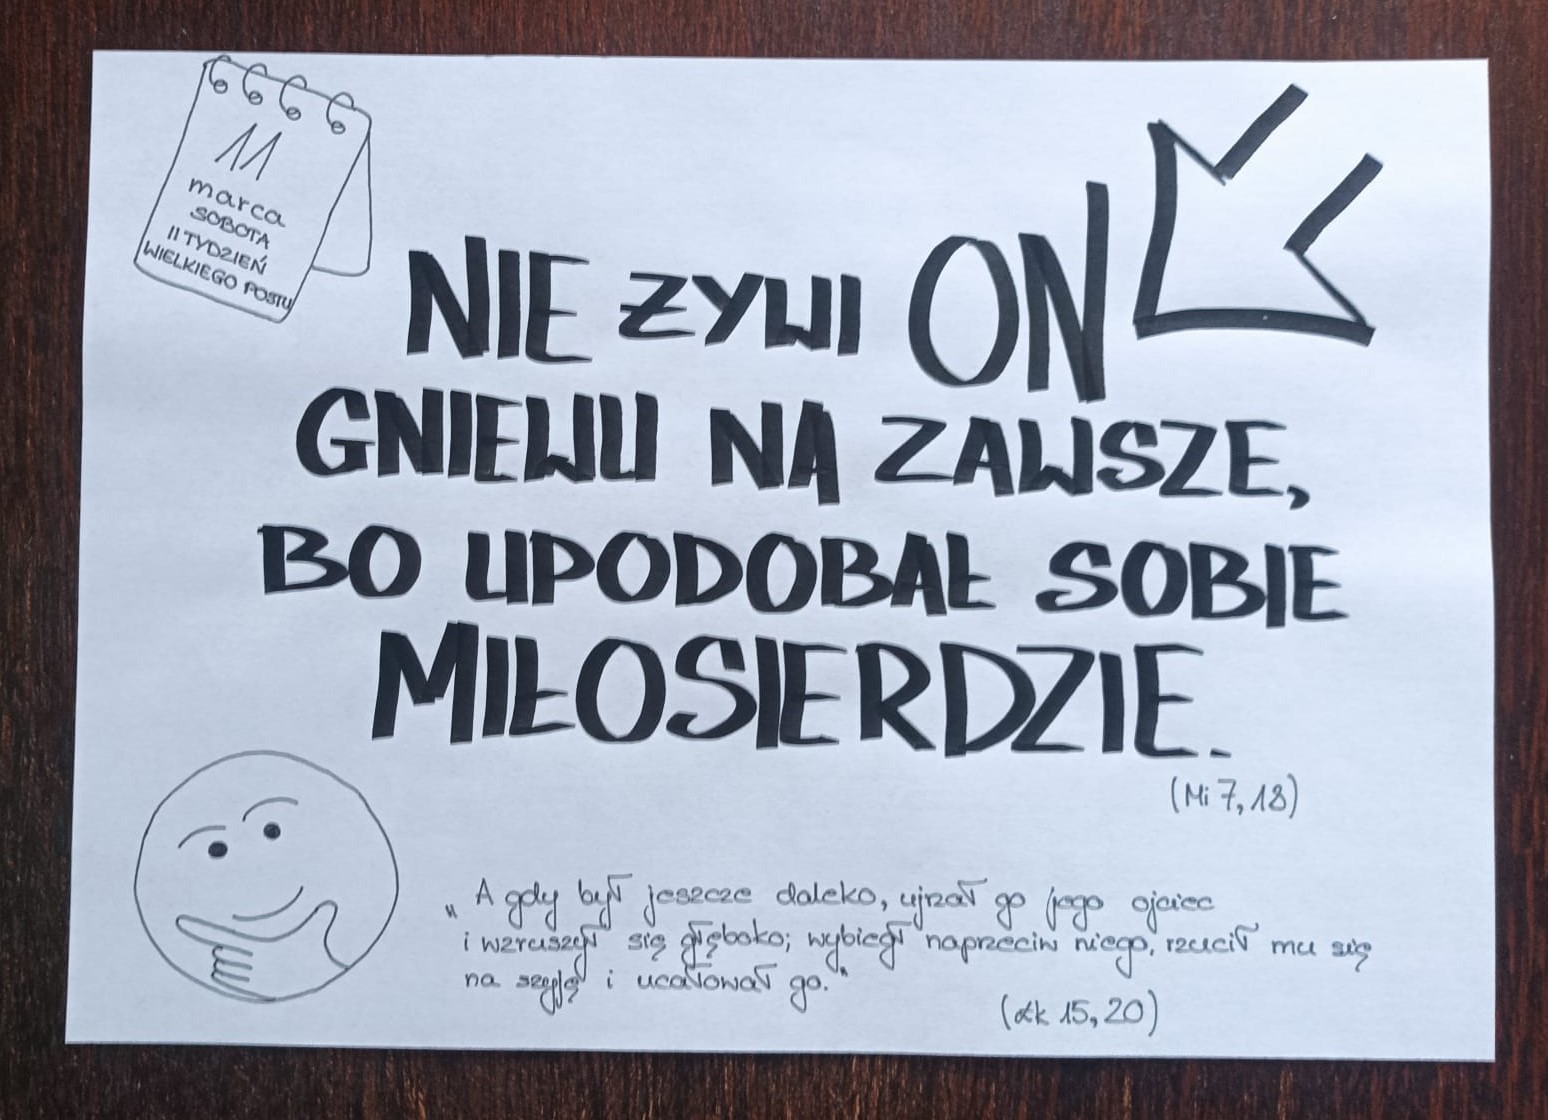 11
marca
SOBOTA
II TYDZIEŃ
WIELKIEGO POSTU
NIE ŻYWI ON
GNIEWU NA ZAWSZE,
BO UPODOBAŁ SOBIE
MIŁOSIERDZIE.
(Mi 7, 18)
„A gdy był jeszcze daleko, ujrzał go jego ojciec
i wzruszył się głęboko; wybiegł naprzeciw niego, rzucił mu się
na szyję i ucałował go."
(Łk 15, 20)